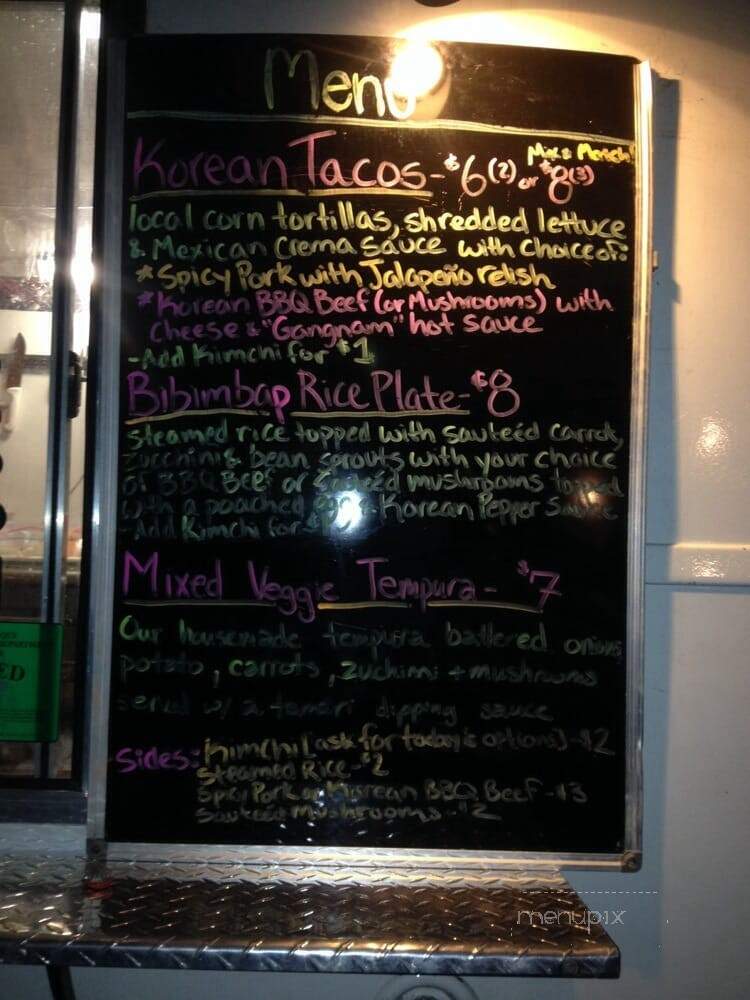 Menu
Mix & Match!
Korean Tacos - $6 (2) or $8 (3)
local corn tortillas, shredded lettuce
& Mexican Crema Sauce with choice of:
* Spicy Pork with Jalapeño relish
* Korean BBQ Beef (or Mushrooms) with
Cheese & "Gangnam" hot sauce
- Add Kimchi for $1
Bibimbap Rice Plate - $8
steamed rice topped with sautéed carrot,
zucchini & bean sprouts with your choice
of BBQ Beef or sautéed mushrooms topped
with a poached egg & Korean Pepper Sauce
- Add Kimchi for
Mixed Veggie Tempura - $7
Our housemade tempura battered onions
potato, carrots, zuchinni + mushrooms
served w/ a tamari dipping sauce
Sides: Kimchi (ask for today's options) - $2
Steamed Rice - $2
Spicy Pork or Korean BBQ Beef - $3
Sauteéd Mushrooms - $2
ED
menupix